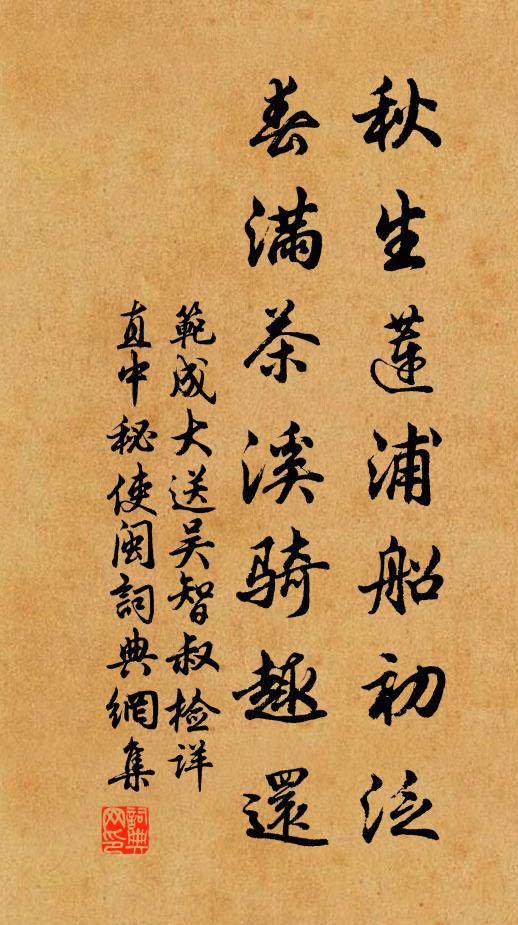 秋生蓮浦船初泛
春滿茶溪騎趣還
範成大送吴智叔检详
直中秘使闽詞典網集
詞典
网印